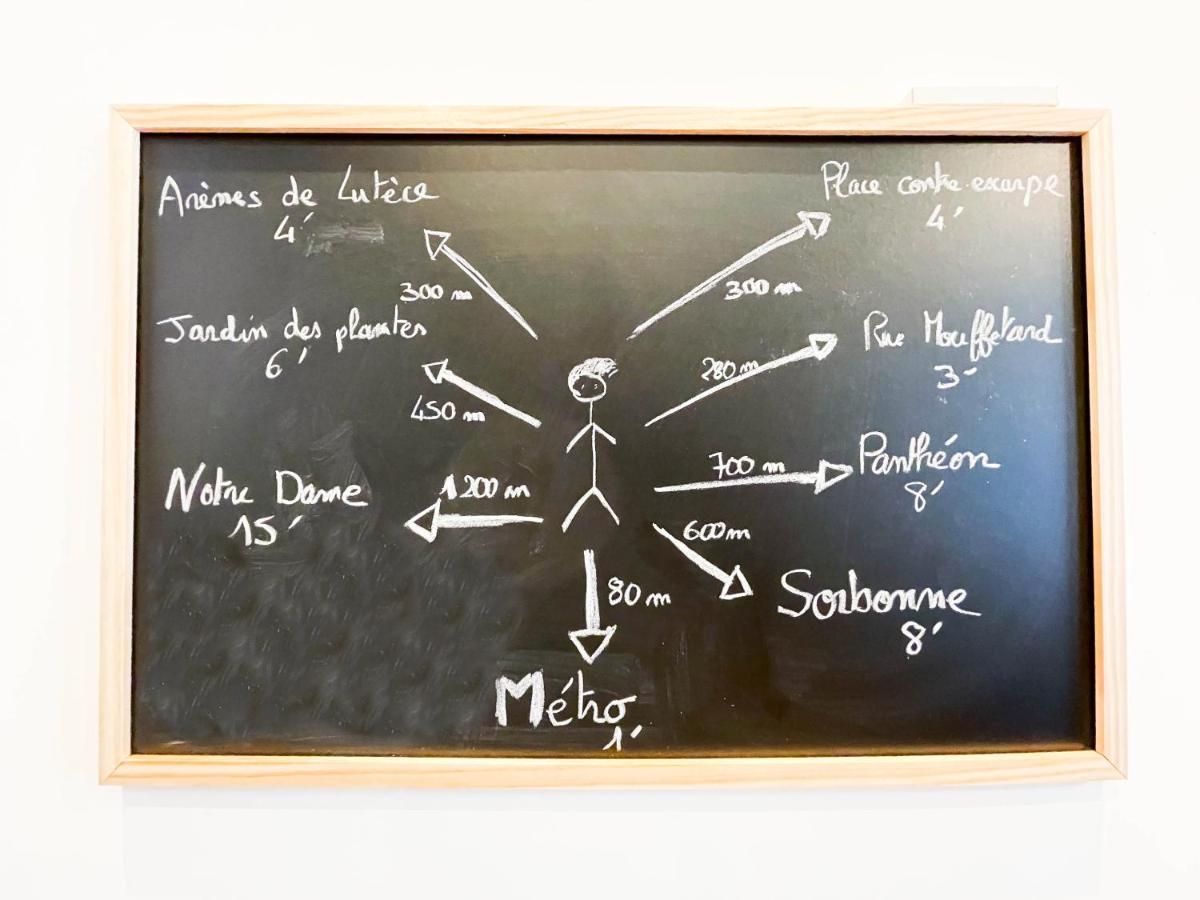 Arènes de Lutèce
4'
300 m
Jardin des plantes
6'
450 m
Notre Dame
15'
1200 m
Place contre.escarpe
4'
300 m
Rue Mouffetard
3'
280 m
Panthéon
8'
700 m
Sorbonne
8'
600 m
80 m
Métro
1'